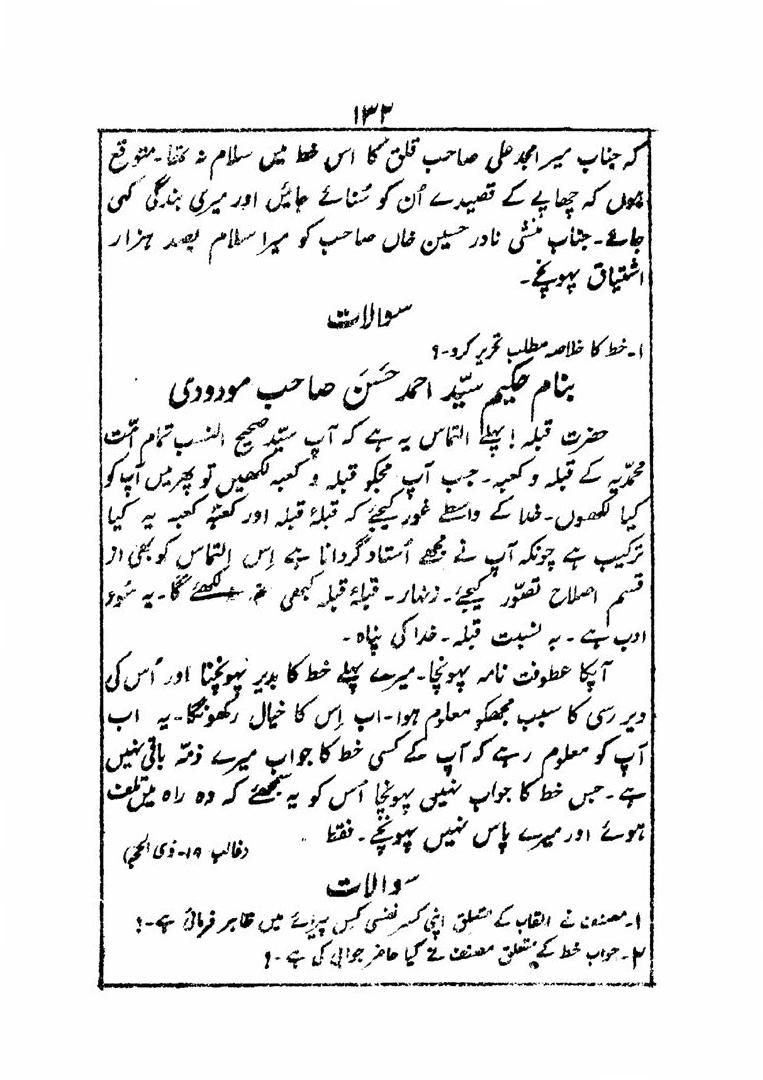 ۱۳۲
کہ جناب میر امجد علی صاحب قلق کا اس خط میں سلام نہ تھا۔ متوقع
ہوں کہ چھاپے کے قصیدے اُن کو سُنائے جائیں اور میری بندگی کہی
جائے۔ جناب منشی نادر حسین خاں صاحب کو میرا سلام بصد ہزار
اشتیاق پہونچے۔
سوالات
۱۔ خط کا خلاصہ مطلب تحریر کرو۔؟
بنام حکیم سیّد احمد حَسَن صاحب مودودی
حضرت قبلہ! پہلے التماس یہ ہے کہ آپ سیّد صحیح النسب تمام اُمّت
محمدّیہ کے قبلہ و کعبہ۔ جب آپ مجکو قبلہ و کعبہ لکھیں تو پھر میں آپ کو
کیا لکھوں۔ خدا کے واسطے غور کیجئے کہ قبلۂ قبلہ اور کعبۂ کعبہ یہ کیا
ترکیب ہے چونکہ آپ نے مجھے اُستاد گردانا ہے اِس التماس کو بھی از
قسم اصلاح تصوّر کیجئے۔ زنہار۔ قبلۂ قبلہ کبھی نہ لکھئے گا۔ یہ سُوء
ادب ہے۔ بہ نسبت قبلہ۔ خدا کی پناہ۔
آپکا عطوفت نامہ پہونچا۔ میرے پہلے خط کا بدیر پہونچنا اور اُس کی
دیر رسی کا سبب مجھکو معلوم ہوا۔ اب اِس کا خیال رکھونگا۔ یہ اب
آپ کو معلوم رہے کہ آپ کے کسی خط کا جواب میرے ذمّہ باقی نہیں
ہے۔ جس خط کا جواب نہیں پہونچا اُس کو یہ سمجھئے کہ وہ راہ میں تلف
ہوئے اور میرے پاس نہیں پہونچے۔ فقط
(غالب ۱۹۔ ذی الحجہ)
سوالات
۱۔ مصنف نے القاب کے متعلق اپنی کسر نفسی کس پیرائے میں ظاہر فرمائی ہے۔؟
۲۔ جواب خط کے متعلق مصنف نے کیا حاضر جوابی کی ہے۔؟